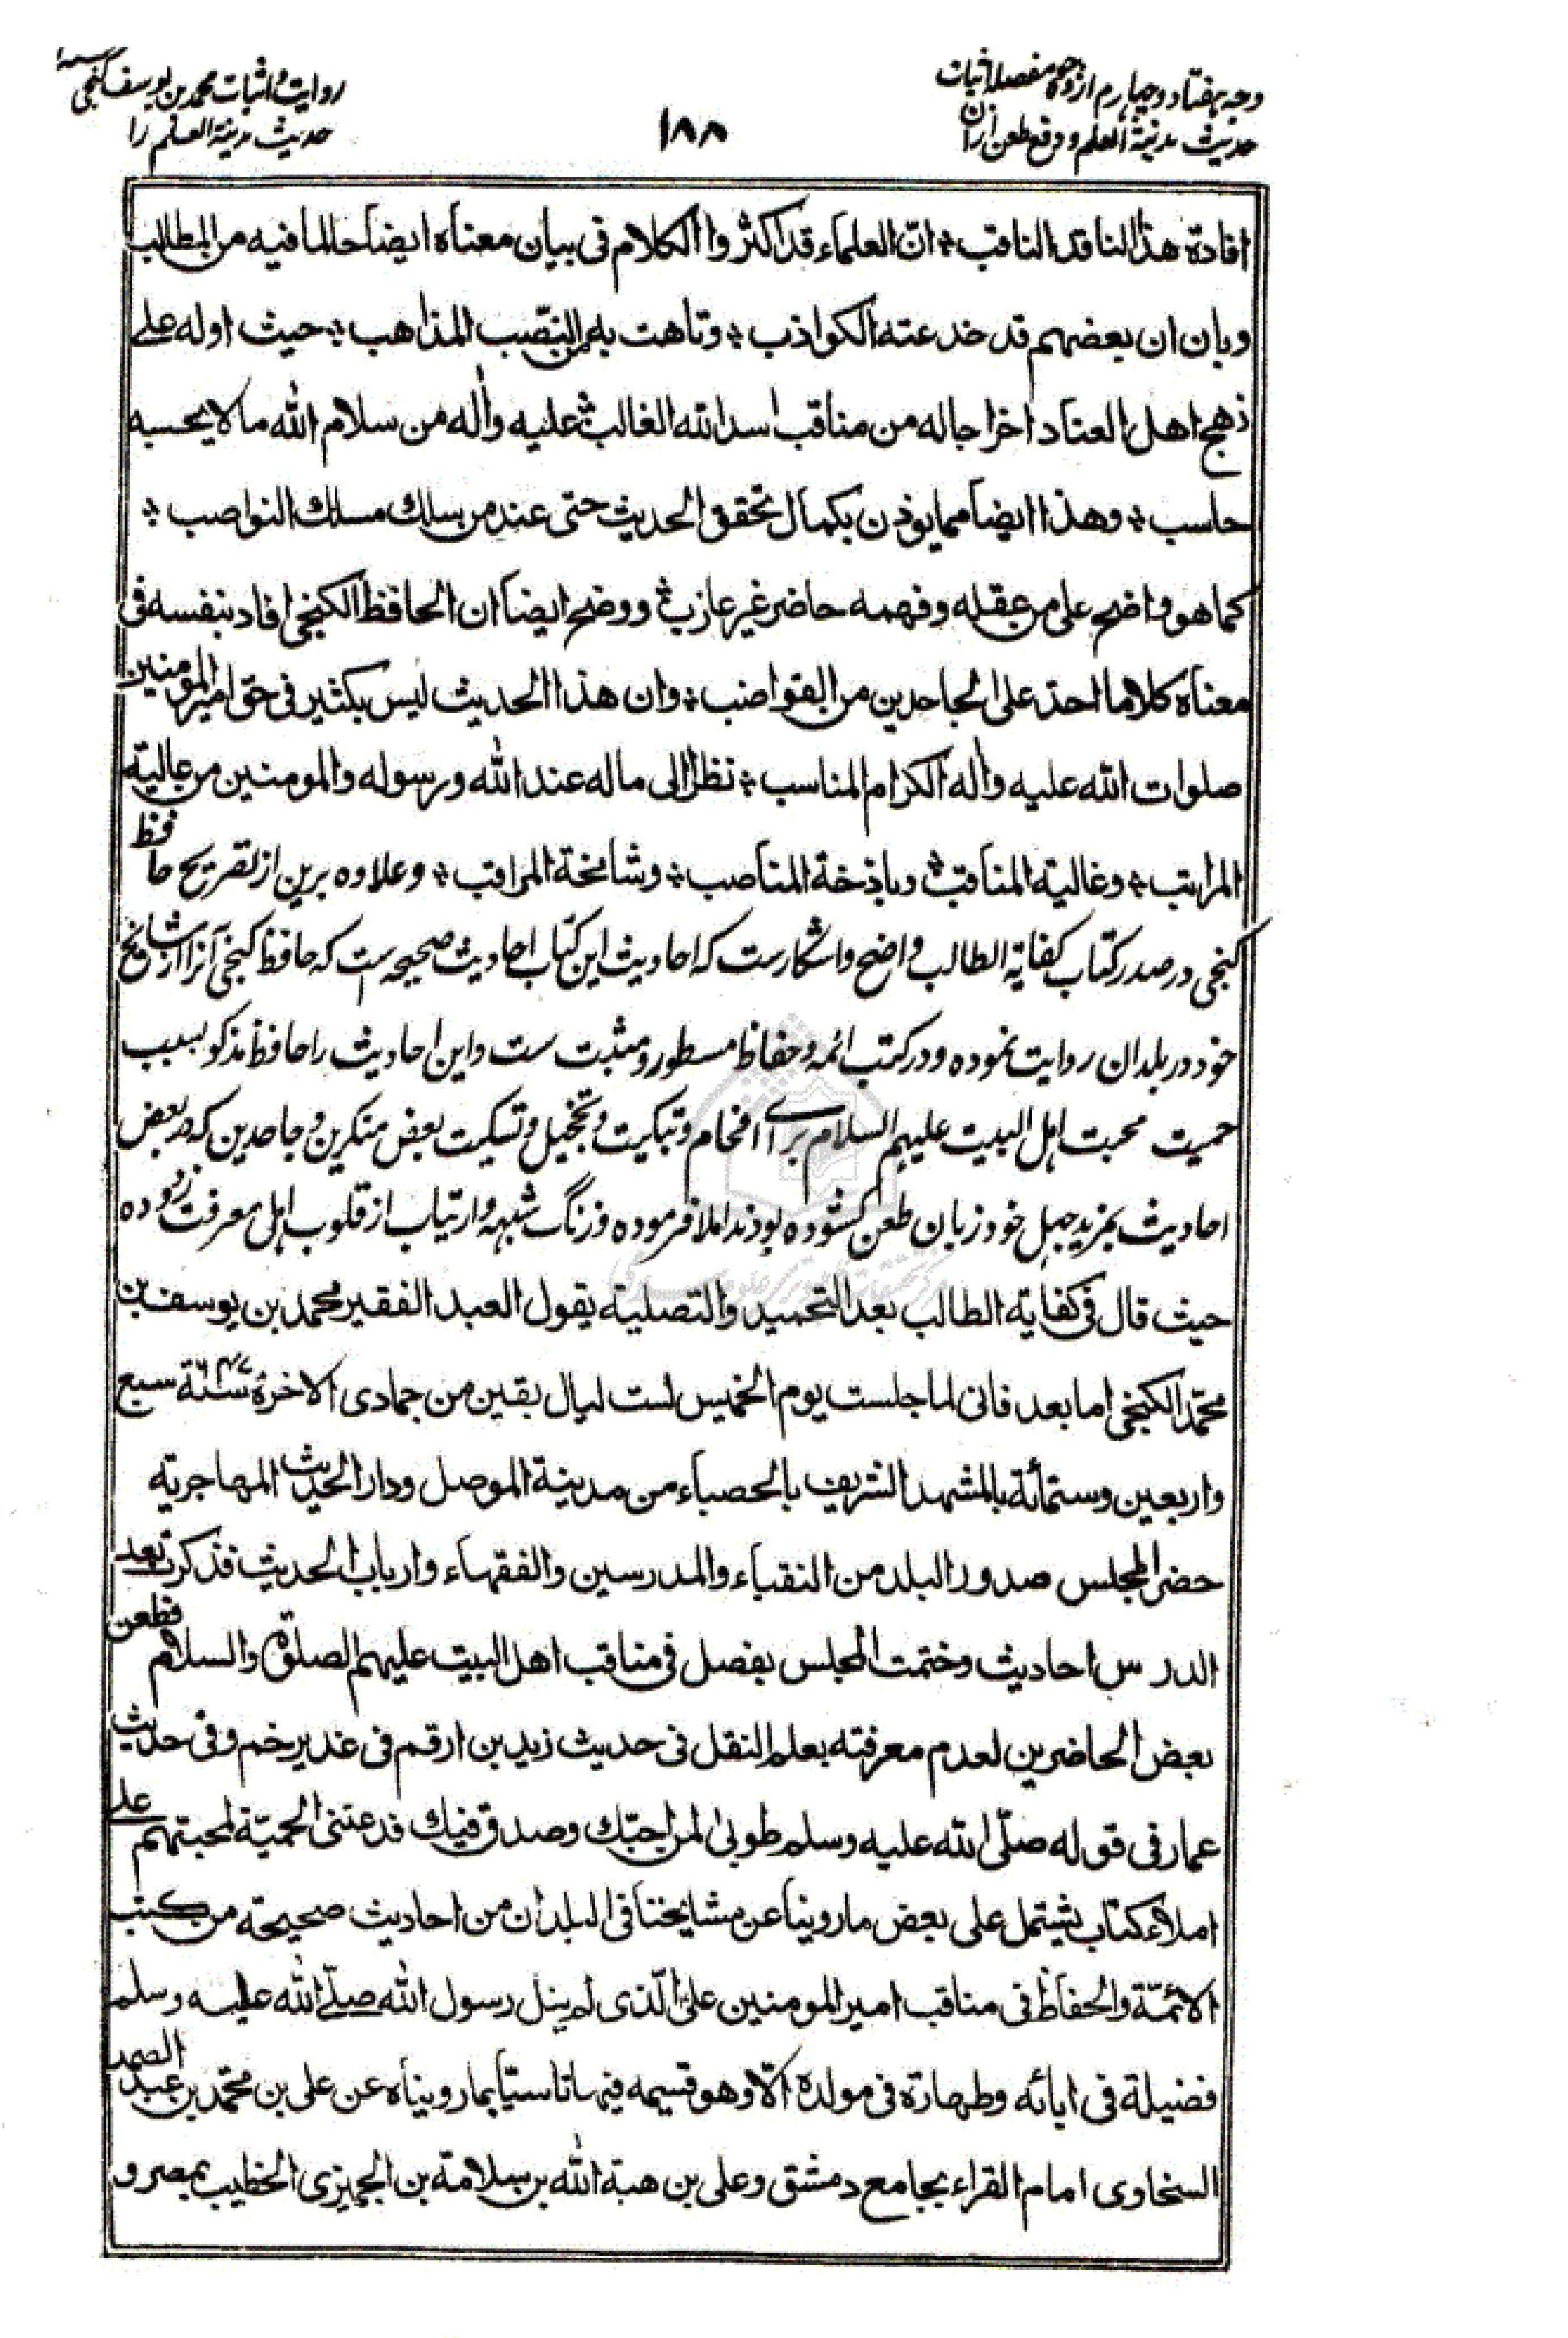 وجه هفتاد و چهارم از وجوه مفصله اثبات
حدیث مدینة العلم و دفع طعن ازان
۱۸۸
روایت و اثبات محمد بن یوسف گنجی
حدیث مدینة العلم را
افادة هذا الناقد الناقب ٭ ان العلماء قد اكثروا الكلام فى بيان معناه ايضاحا لما فيه من المطالب
وبان ان بعضهم قد خدعته الكواذب ٭ وتاهت به من النصب المذاهب ٭ حيث اوله على
نهج اهل العناد اخراجا له من مناقب اسد الله الغالب ٭ عليه واٰله من سلام الله ما لا يحسبه
حاسب ٭ وهذا ايضا مما يوذن بكمال تحقق الحديث حتى عند من سلك مسلك النواصب ٭
كما هو واضح على من عقله وفهمه حاضر غير عازب ٭ ووضح ايضا ان الحافظ الكنجى افاد بنفسه فى
معناه كلاما احد على الجاحدين من القواضب ٭ وان هذا الحديث ليس بكثير فى حق امير المومنين
صلوات الله عليه واٰله الكرام المناسب ٭ نظرا الى ما له عند الله ورسوله والمومنين من عالية
المراتب ٭ وغالية المناقب ٭ وباذخة المناصب ٭ وشامخة المراقب ٭ وعلاوه برین از تصریح حافظ
کنجی در صدر کتاب کفایة الطالب واضح و اشکارست که احادیث این کتاب احادیث صحیحه ست که حافظ کنجی آنرا از مشایخ
خود در بلدان روایت نموده و در کتب ائمه و حفاظ مسطور و مثبت ست و این احادیث را حافظ مذکور بسبب
حمیت محبت اهل البیت علیهم السلام برای افحام و تبکیت و تخجیل و تسکیت بعض منکرین و جاحدین که در بعض
احادیث بمزید جهل خود زبان طعن کشوده بودند املا فرموده و زنگ شبهه و ارتیاب از قلوب اهل معرفت زدوده
حيث قال فى كفاية الطالب بعد التحميد والتصلية يقول العبد الفقير محمد بن يوسف بن
محمد الكنجى اما بعد فانى لما جلست يوم الخميس لست ليال بقين من جمادى الاخرة سنة ۶۴۷ سبع
واربعين وستمائة بالمشهد الشريف بالحصباء من مدينة الموصل ودار الحديث المهاجرية
حضر المجلس صدور البلد من النقباء والمدرسين والفقهاء وارباب الحديث فذكرت بعد
الدرس احاديث وختمت المجلس بفصل فى مناقب اهل البيت عليهم الصلوة والسلام فطعن
بعض الحاضرين لعدم معرفته بعلم النقل فى حديث زيد بن ارقم فى غدير خم وفى حديث
عمار فى قوله صلّى الله عليه وسلم طوبى لمن احبّك وصدق فيك فدعتنى الحميّة لمحبتهم على
املاء كتاب يشتمل على بعض ما رويناه عن مشايخنا فى البلدان من احاديث صحيحة من كتب
الائمّة والحفاظ فى مناقب امير المومنين على الّذى لم ينل رسول الله صلّى الله عليه وسلم
فضيلة فى ابائه وطهارة فى مولده الّا وهو قسيمه فيها تاسيّا بما رويناه عن على بن محمّد بن عبد الصمد
السخاوى امام القراء بجامع دمشق وعلى بن هبة الله بن سلامة بن الجميزى الخطيب بمصر و